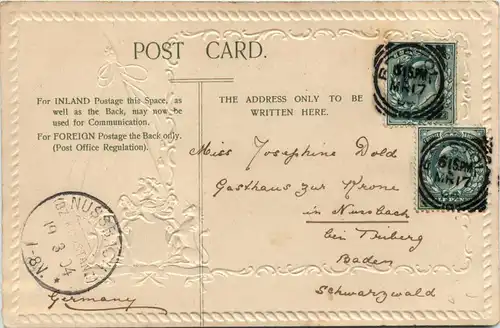 POST CARD.
For INLAND Postage this Space, as
well as the Back, may now be
used for Communication.
For FOREIGN Postage the Back only.
(Post Office Regulation).
THE ADDRESS ONLY TO BE
WRITTEN HERE.
Miss Josephine Dold
Gasthaus zur Krone
in Nussbach
bei Triberg
Baden
Schwarzwald
Germany
NUSSBACH
19 3 04
1-8V.
6 15 PM
MR 17
6 15 PM
MR 17